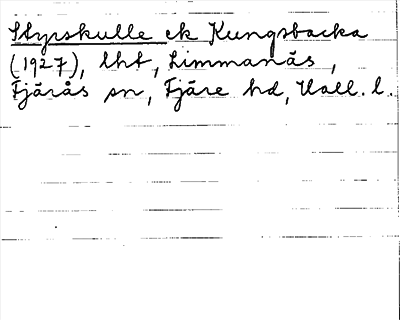 Styrskulle ek Kungsbacka
(1927), lht, Limmanäs,
Fjärås sn, Fjäre hd, Hall. l.